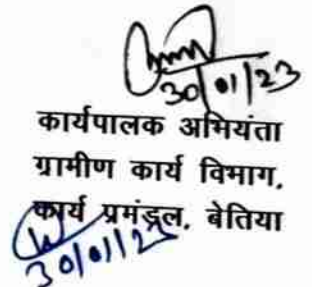 30/01/23
कार्यपालक अभियंता
ग्रामीण कार्य विभाग,
कार्य प्रमंडल, बेतिया
30/01/23